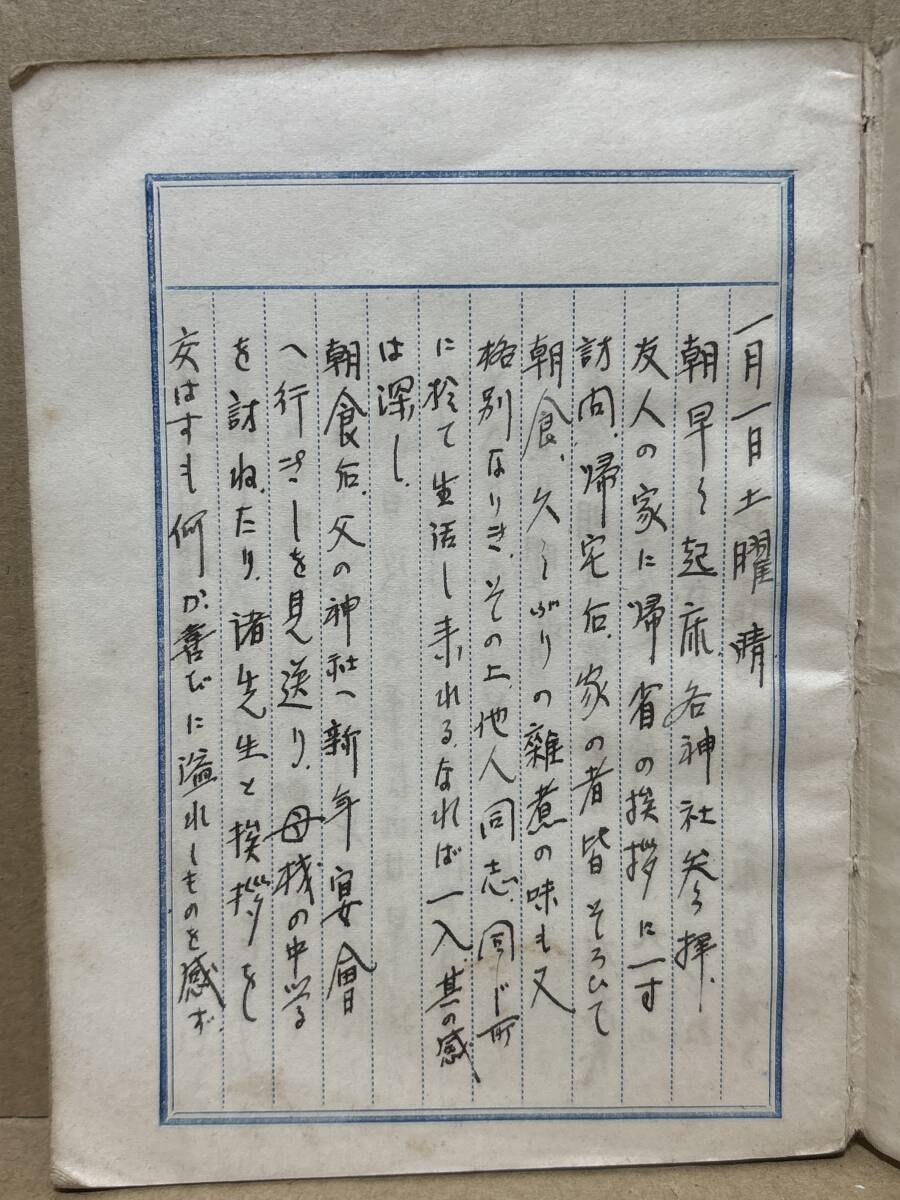 一月一日土曜晴
朝早く起床、各神社参拝、
友人の家に帰省の挨拶に一寸
訪問、帰宅后、家の者皆そろひて
朝食、久しぶりの雑煮の味も又
格別なりき、その上、他人同志、同じ所
に於て生活し来れるなれば一入、其の感
は深し、
朝食后、父の神社へ新年宴會
へ行きしを見送り、母校の中学
を訪ねたり、諸先生と挨拶を
交はすも何か喜びに溢れしものを感ず、